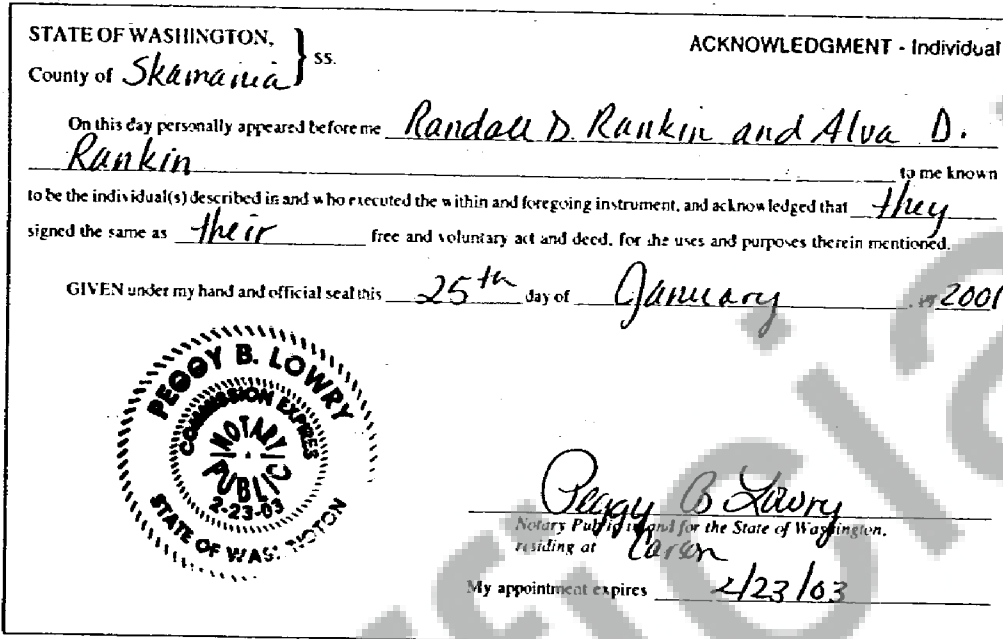 STATE OF WASHINGTON,
ss.
ACKNOWLEDGMENT - Individual
County of Skamania
On this day personally appeared before me Randall D. Rankin and Alva D.
Rankin to me known
to be the individual(s) described in and who executed the within and foregoing instrument, and acknowledged that they
signed the same as their free and voluntary act and deed, for the uses and purposes therein mentioned.
GIVEN under my hand and official seal this 25th day of January 2001
PEGGY B. LOWRY
COMMISSION EXPIRES
NOTARY
PUBLIC
2-23-03
STATE OF WASHINGTON
Peggy B Lowry
Notary Public in and for the State of Washington,
residing at Carson
My appointment expires 2/23/03